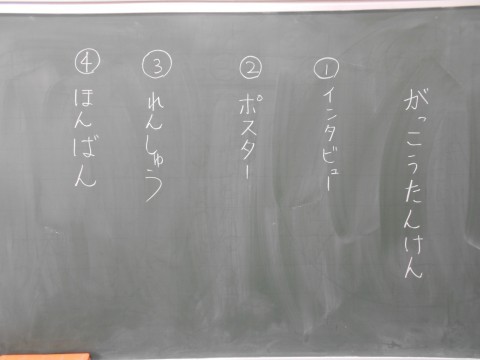 がっこうたんけん
①インタビュー
②ポスター
③れんしゅう
④ほんばん